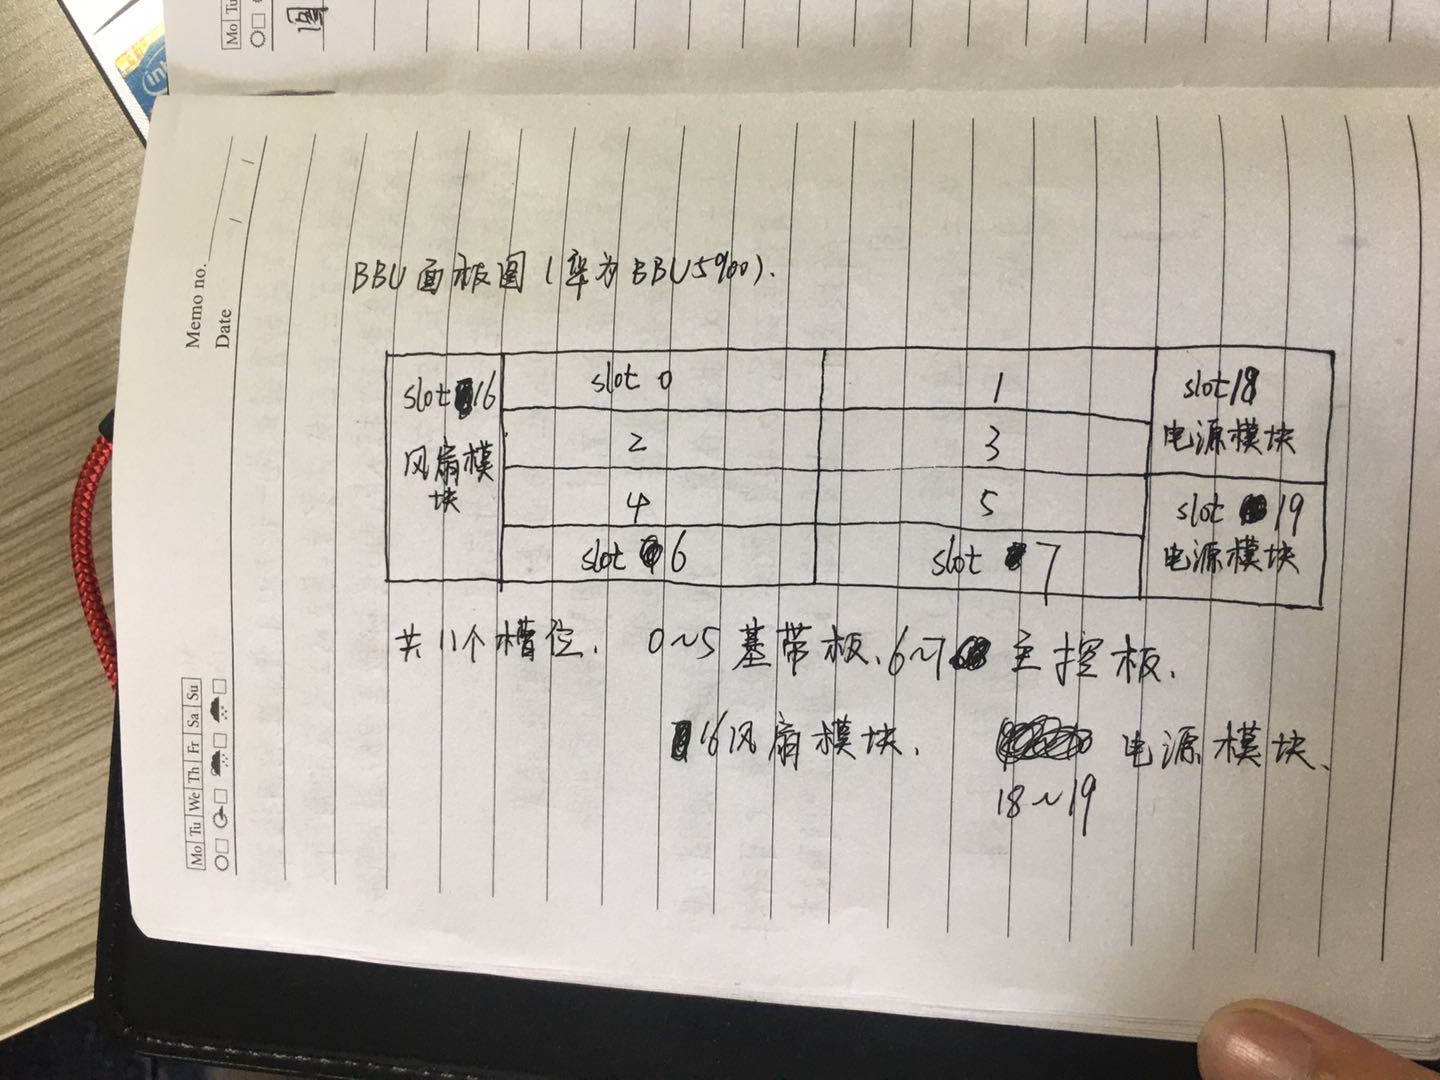 Mo Tu
图
Memo no.
Date
/ /
Mo Tu We Th Fr Sa Su
BBU面板图(华为BBU5900).
slot 16
风扇模
块
slot 0
1
2
3
4
5
slot 6
slot 7
slot 18
电源模块
slot 19
电源模块
共11个槽位. 0~5基带板、6~7主控板.
16风扇模块. 电源模块、
18~19